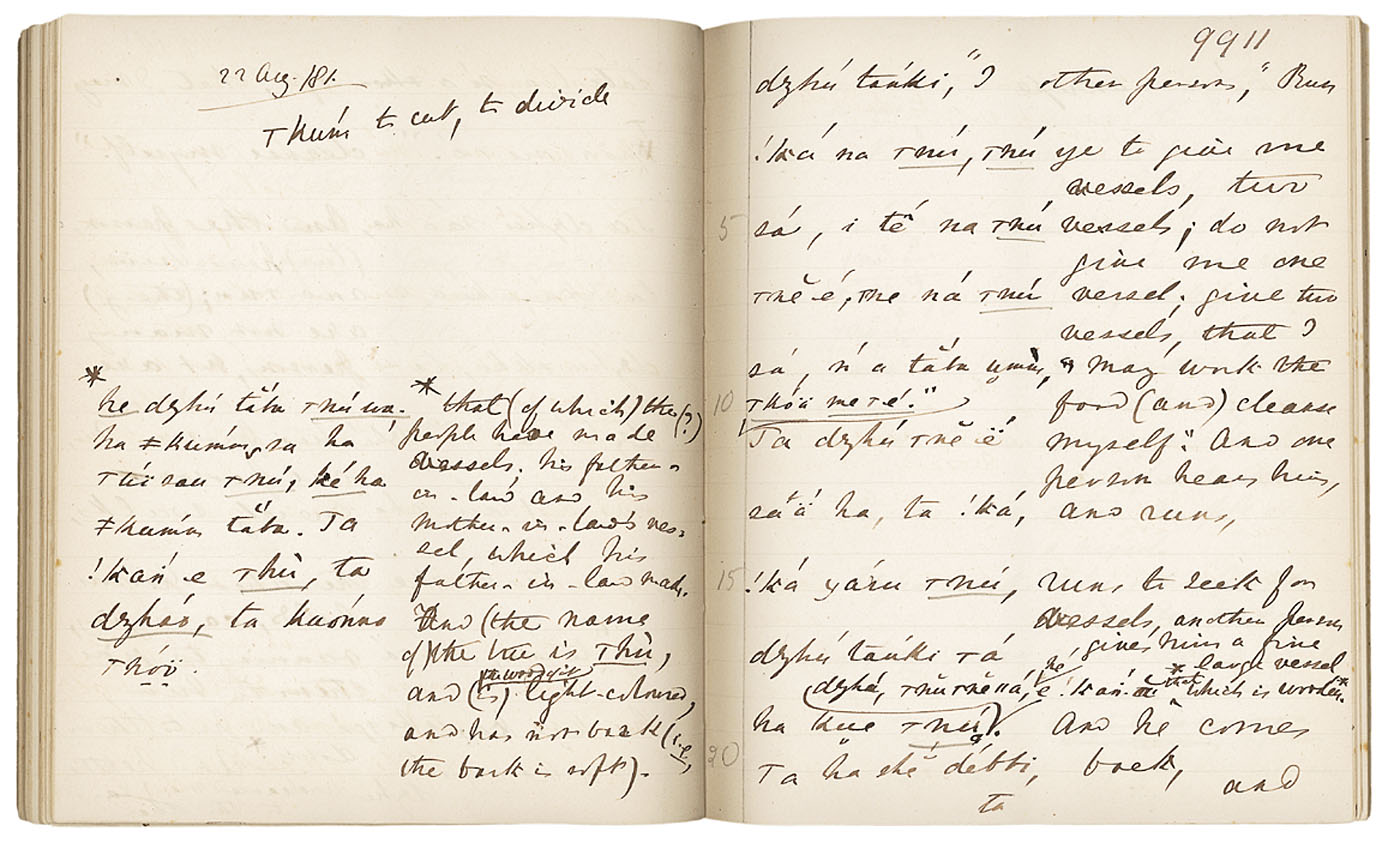 22 Aug. /81.
Tkum to cut, to divide
*
he dzhú tăba Tnú wa.
ha ǂkumm, sa há
Túï sau Tnú, ké ha
ǂkumm tăba. Ta
!kań-e Thù, ta
dzháo, ta kuónna
Tkóö.
* that (of which) the (?)
people have made
vessels. his father-
in-law and his
mother-in-law's ves-
sel, which his
father-in-law made.
And (the name
of) the tree is Thù,
and (is) light-coloured,
and has not bark (i.e.,
the bark is soft).
9911
dzhú taúki," ? other person," Run
!ká na Tnú, Tnú ye to give me
vessels, two
5
sá, i tĕ na Tnú vessels; do not
give me one
Tnĕ é, Tne ná Tnú vessel; give two
vessels, that ?
sá, ń a tăba " may work the
10
Tkóä me Té." food (and) cleanse
Ta dzhú Tnĕ ë myself." And one
person hears him,
sá'ä ha, ta !ká, and runs,
15
!ká yáru Tnú, runs to seek for
vessels, another person
dzhú taúki Tá gives him a fine
large vessel
(dzhá, Tnŭ Tnĕ ná, hé é !kań. * that which is wooden.*
ha kue Tnú). And he comes
20
Ta hă shĕ débbi, back, and
ta